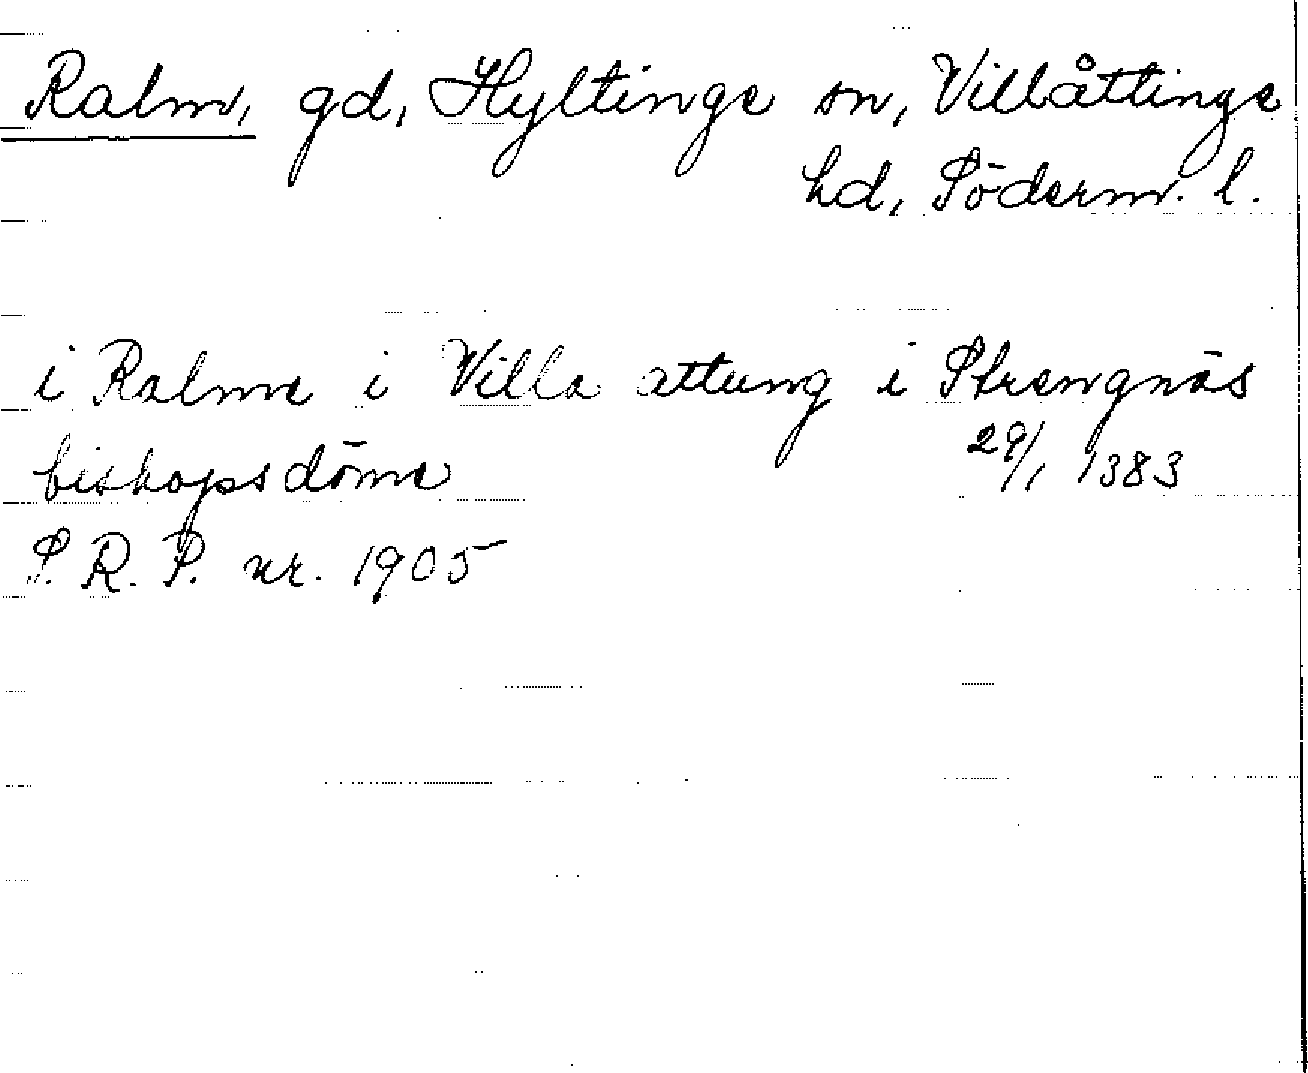 Ralm, gd, Hyltinge sn, Villåttinge
hd, Söderm. l.
i Ralme i Villa attung i Strengnäs
biskopsdöme 29/1 1383
S. R. P. nr. 1905